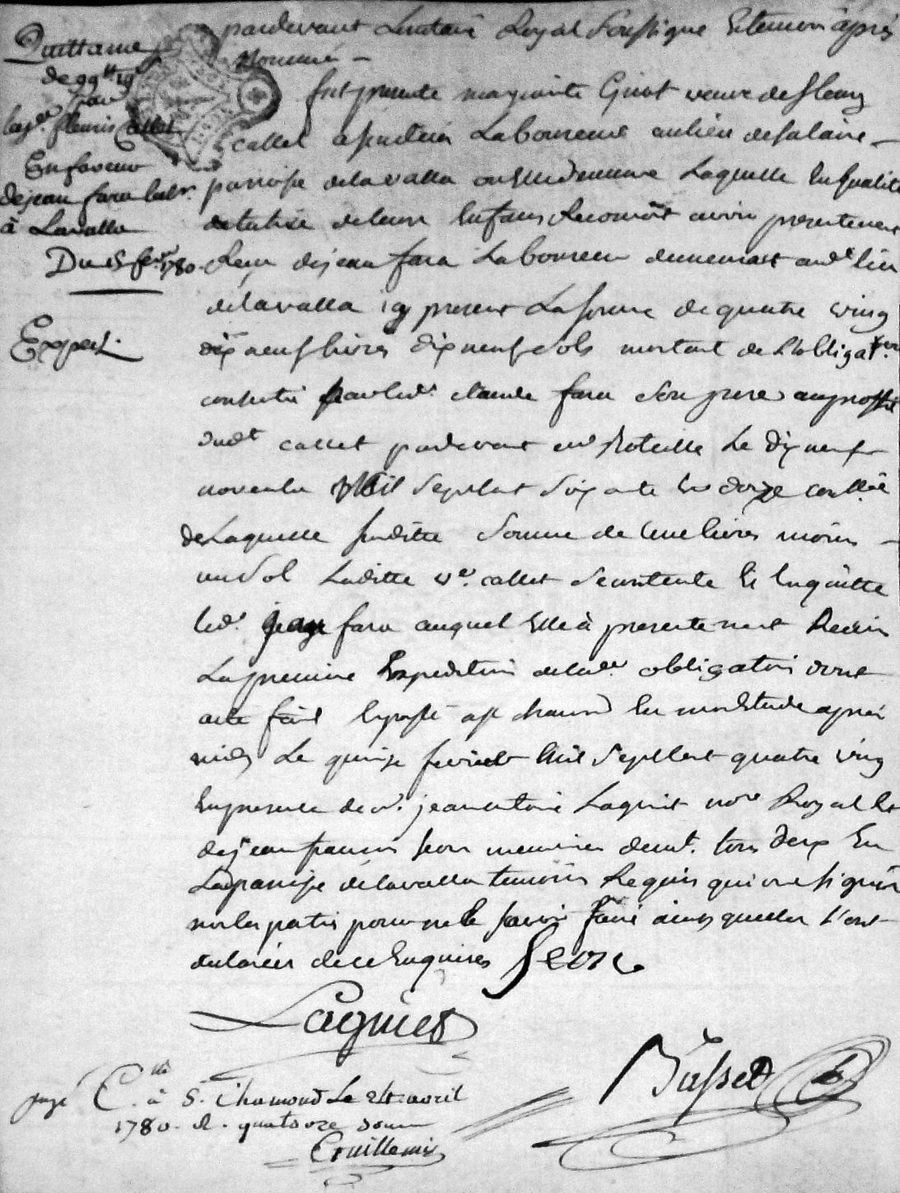 Quittance
de 99tt 19s
par
fleuris Callet
En faveur
de jean fara labr.
à Lavalla
Du 15 fevr 1780
Exped.
pardevant Lenotaire Royal Soussigné Et temoin après
Nommé
fut presente margueritte veuve de fleury
callet Laboureur au lieu de
parroisse delavalla ou elle demeure Laquelle En qualité
de leurs Enfans Reconoit avoir presentement
Receu de jean fara Laboureur demeurant aud. lieu
delavalla icy present La somme de quatre ving
dix neuf livres dix neuf sols montant de Lobligation
par led. claude fara son pere au proffit
dud. callet pardevant me le dix neuf
novembre Mil Sept Cent Soixante Et douze
de Laquelle susditte Somme de Cent livres moins
un Sol Laditte ve. callet se contente Et En quitte
led. jean fara auquel Elle à presentement Remis
La premiere Expedition de lad. obligation dont
acte fait Et passé à st chamond En mon Etude après
midy Le quinze fevrier Mil Sept Cent quatre ving
En presence de me. jean antoine Laguiet nore Royal Et
de jean francois Seon demt. tous deux En
La paroisse delavalla temoins Requis qui ont signé
non les parties pour ne le savoir faire ainsi quelles L'ont
declaré de ce Enquises Seon
Laguiet
Busset
C.lle à St. Chamond Le 24 avril
1780 R. quatorze sous